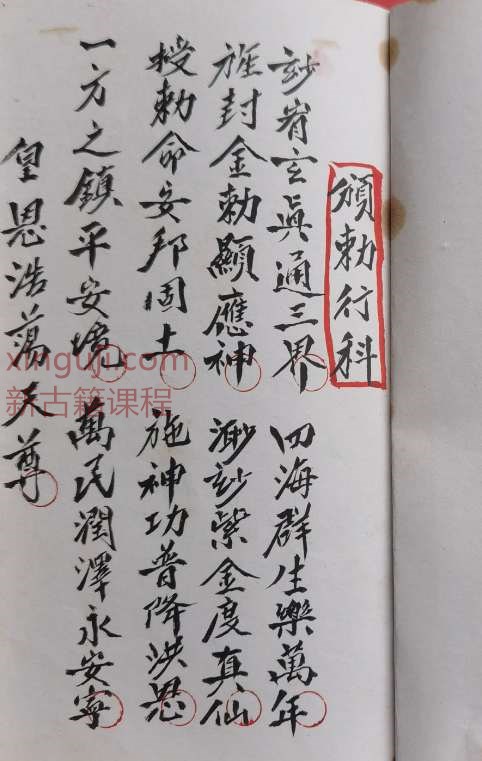 頒勅行科
玅有玄真通三界 四海群生樂萬年
旌封金勅顯應神 渺玅紫金度真仙
授勅命安邦固土 施神功普降洪恩
一方之鎮平安境 萬民潤澤永安寧
皇恩浩蕩天尊
xinguji.com
新古籍课程